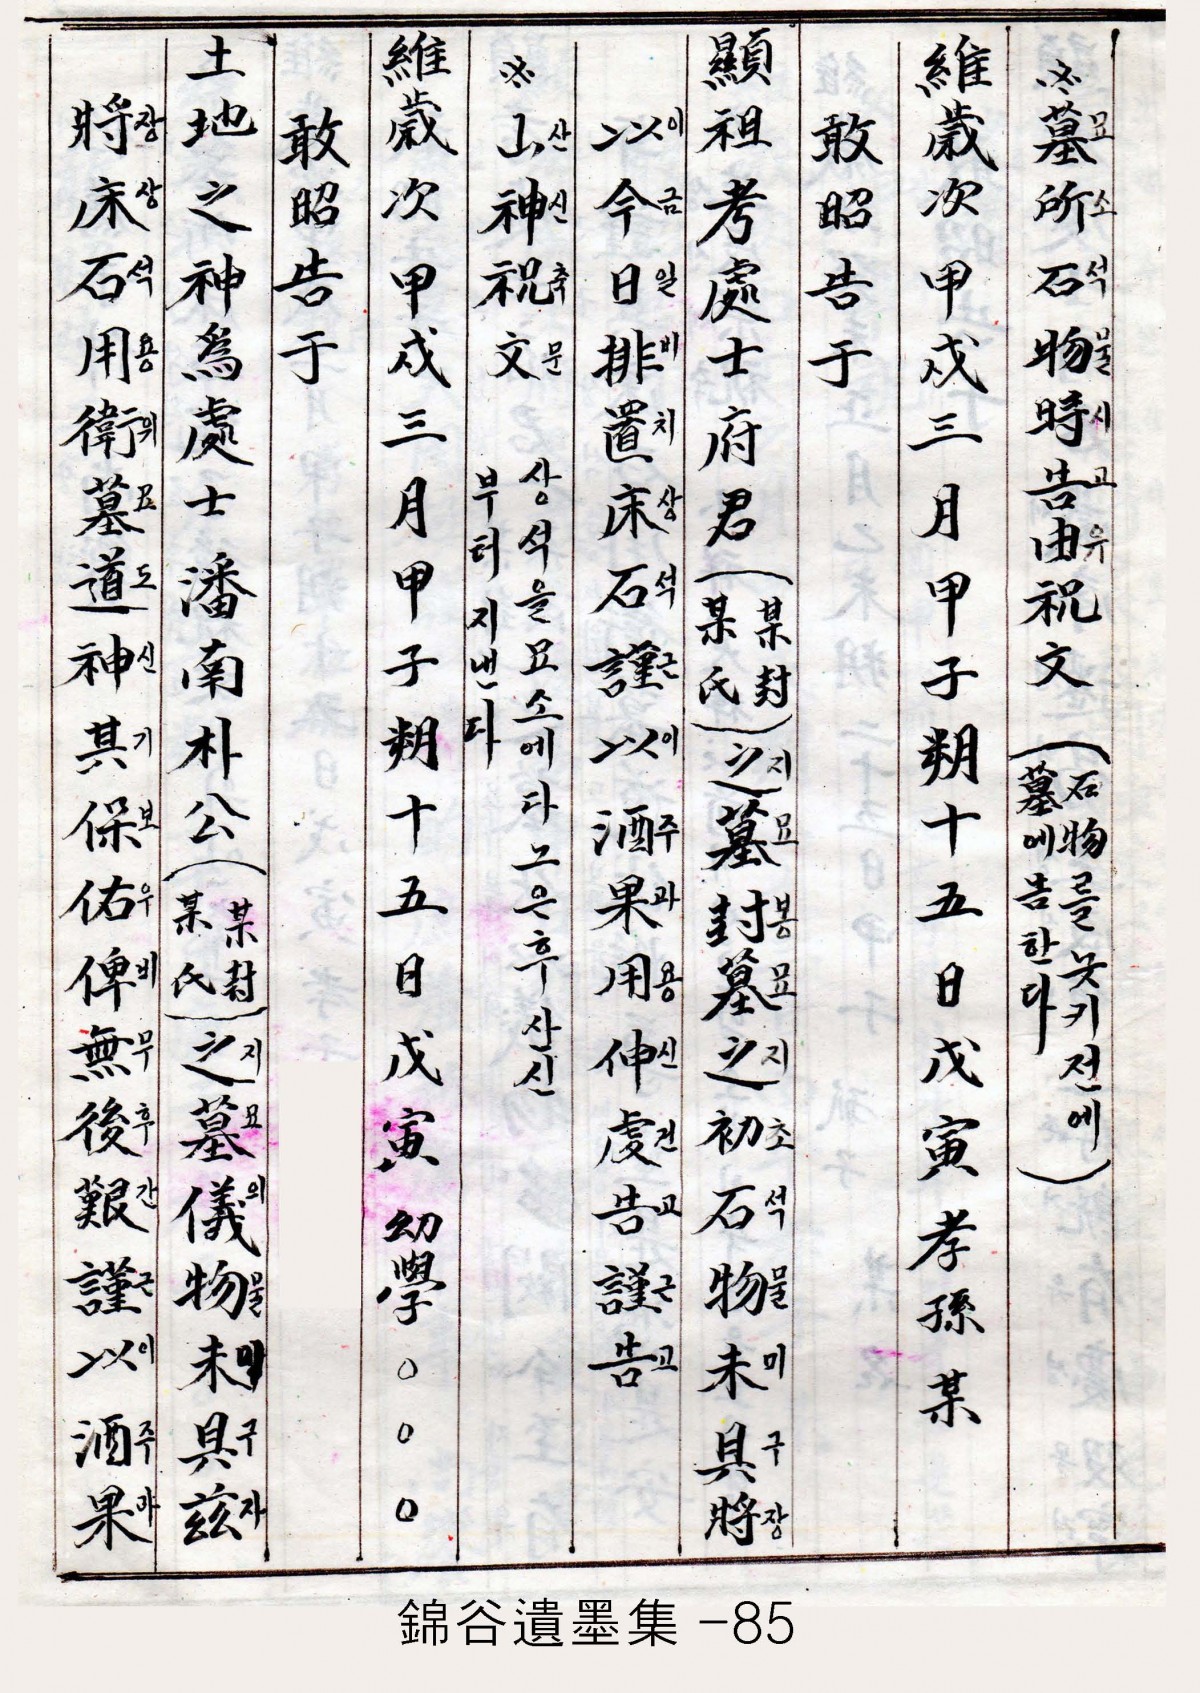 ※墓所石物時告由祝文(石物르롯키전에墓에告한다)
묘소석물시고유
維歲次甲戌三月甲子朔十五日戊寅孝孫某
敢昭告于
顯祖考處士府君(某封某氏)之墓封墓之初石物未具將
지묘봉묘지초석물미구장
以今日排置床石謹以酒果用伸虔告謹告
이금일비치상석근이주과용신건고근고
※山神祝文 상석을묘소에다그은후산신부터지낸다
산신축문
維歲次甲戌三月甲子朔十五日戊寅 幼學○○○
敢昭告于
土地之神爲處士潘南朴公(某封某氏)之墓儀物未具玆
지묘의물미구자
將床石用衛墓道神其保佑俾無後艱謹以酒果
장상석용위묘도신기보우비무후간근이주과
錦谷遺墨集 -85